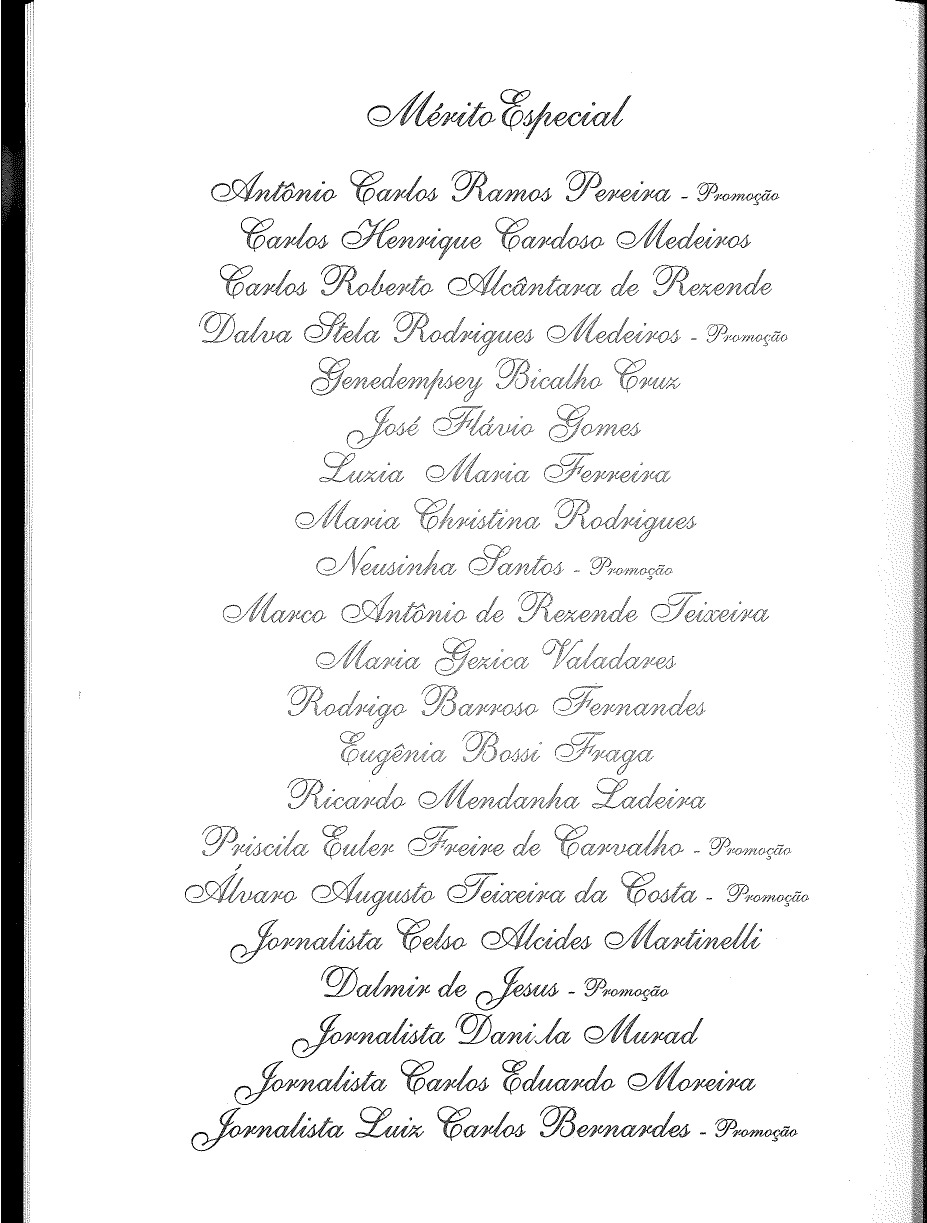 Mérito Especial
Antônio Carlos Ramos Pereira - Promoção
Carlos Henrique Cardoso Medeiros
Carlos Roberto Alcântara de Rezende
Dalva Stela Rodrigues Medeiros - Promoção
Genedempsey Bicalho Cruz
José Flávio Gomes
Luzia Maria Ferreira
Maria Christina Rodrigues
Neusinha Santos - Promoção
Marco Antônio de Rezende Teixeira
Maria Gezica Valadares
Rodrigo Barroso Fernandes
Eugênia Bossi Fraga
Ricardo Mendanha Ladeira
Priscila Euler Freire de Carvalho - Promoção
Álvaro Augusto Teixeira da Costa - Promoção
Jornalista Celso Alcides Martinelli
Dalmir de Jesus - Promoção
Jornalista Danila Murad
Jornalista Carlos Eduardo Moreira
Jornalista Luiz Carlos Bernardes - Promoção